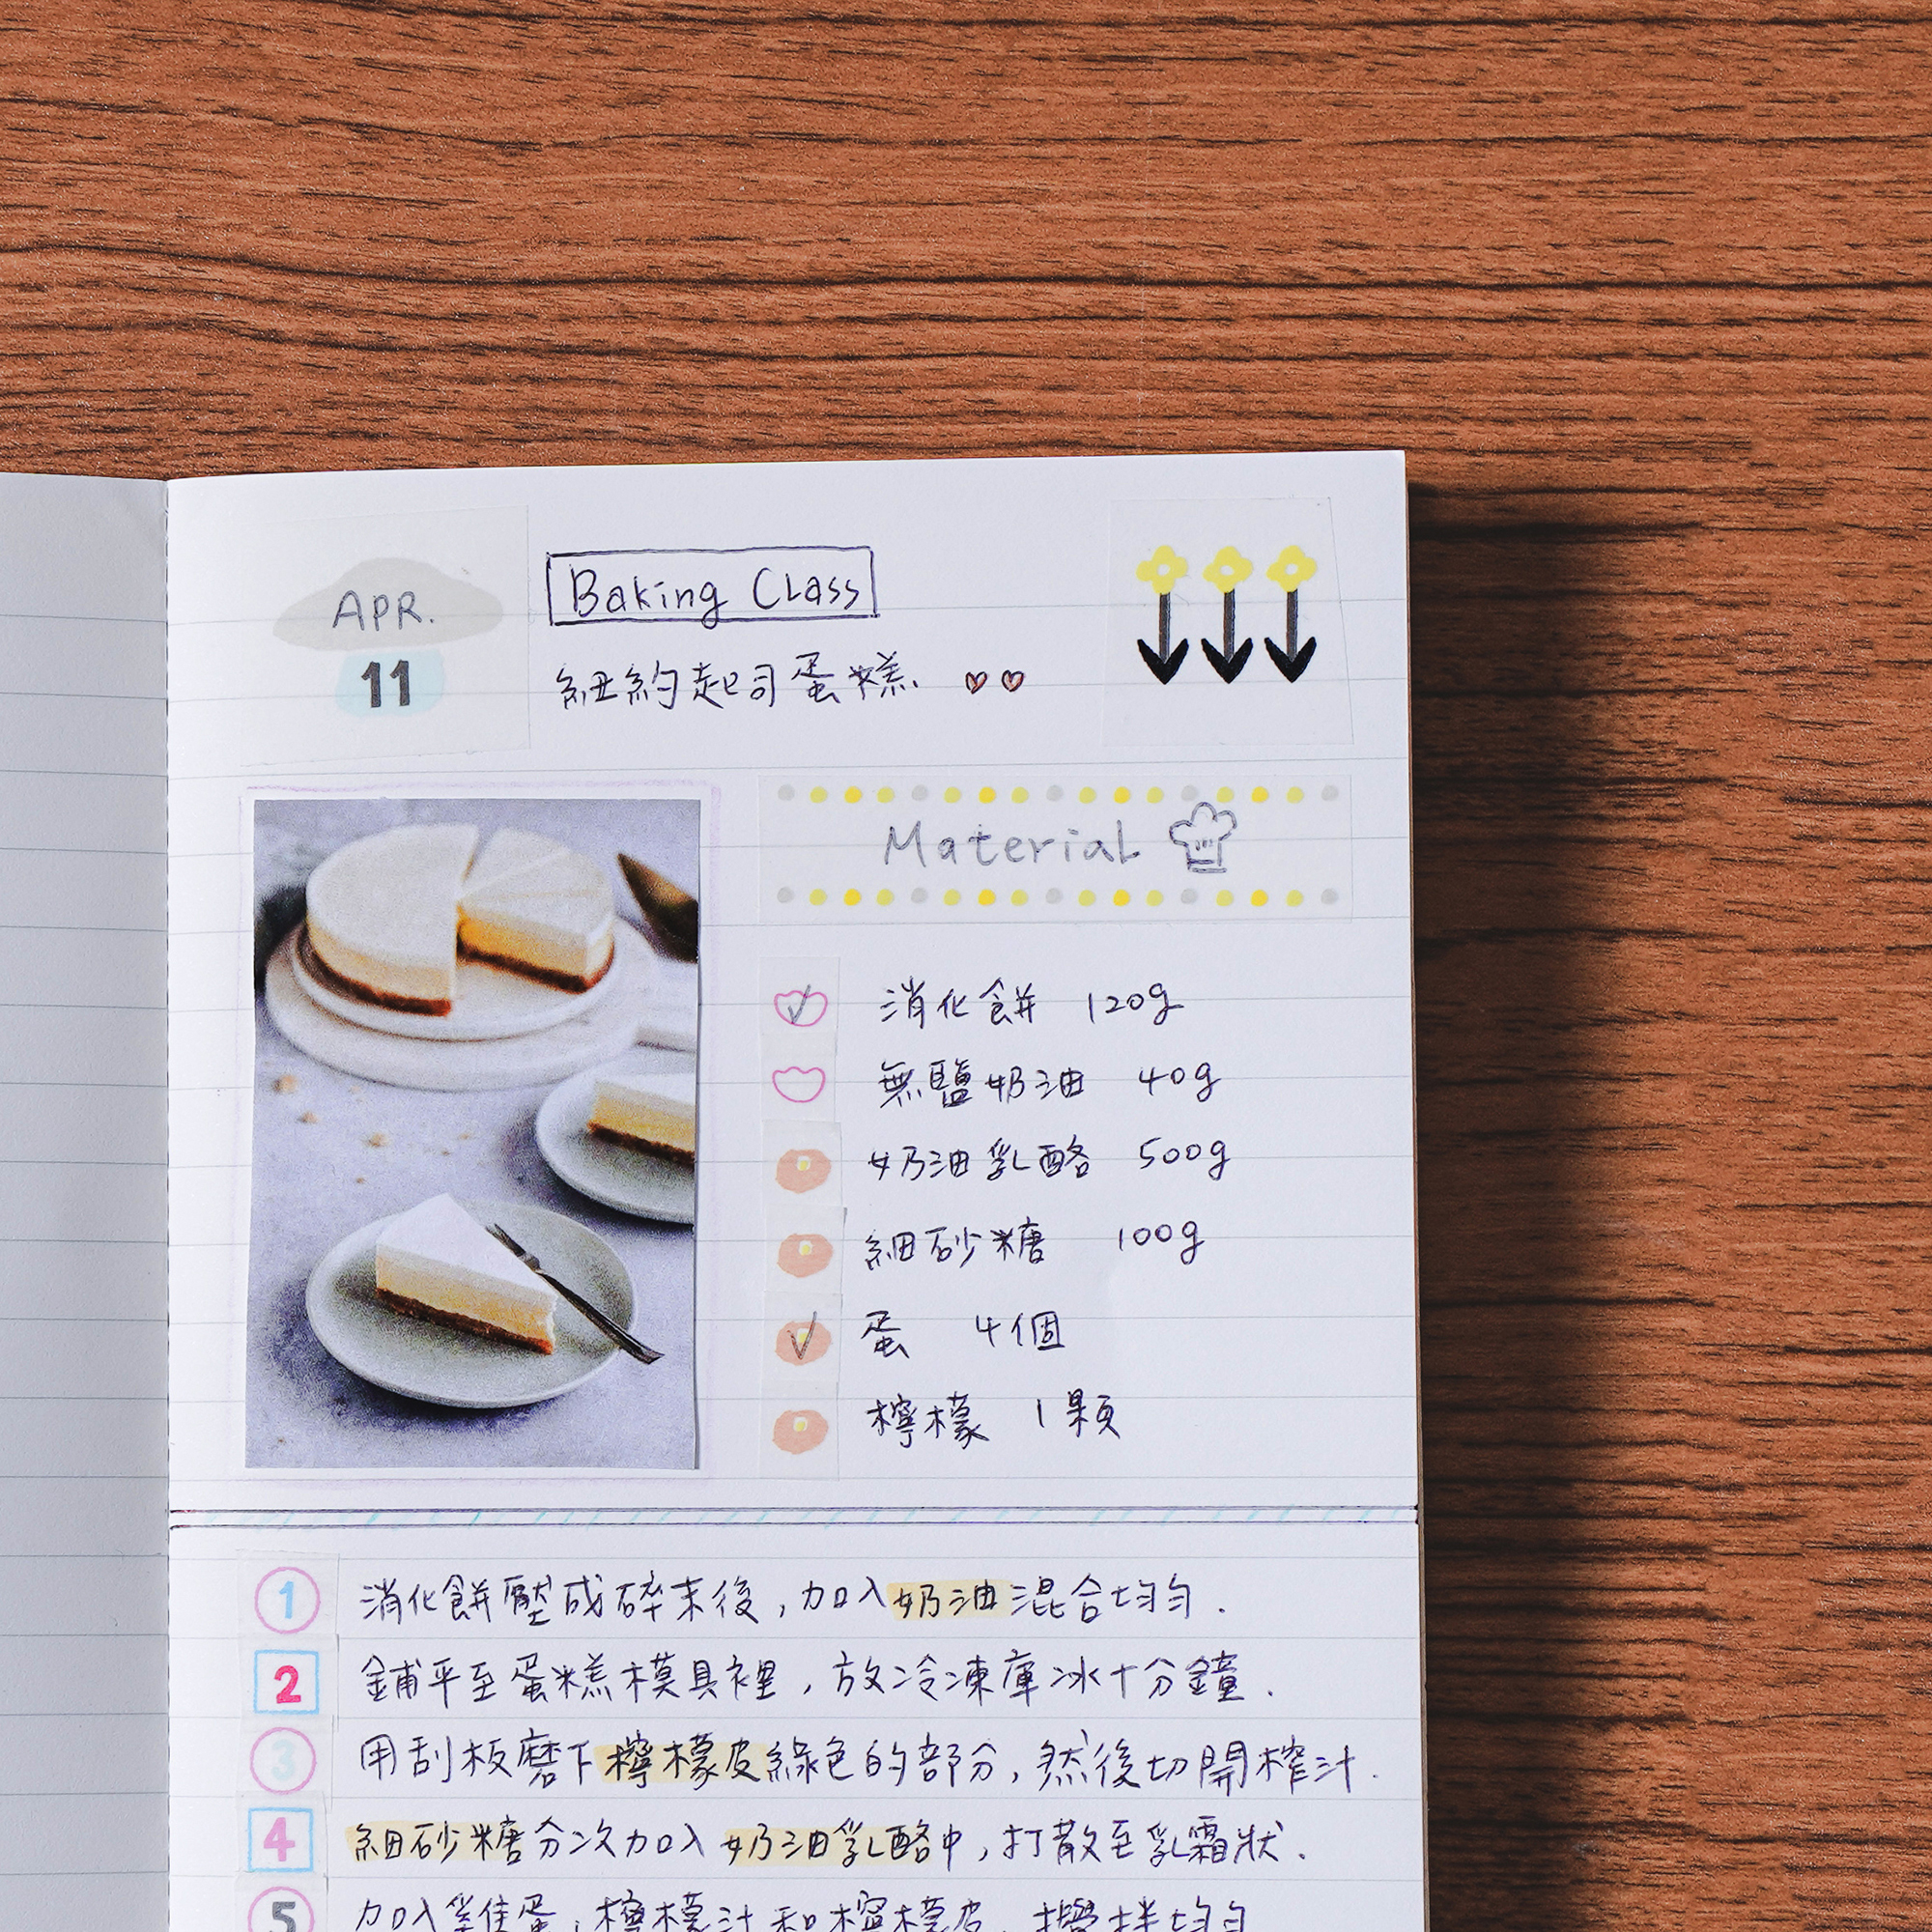 APR.
11
Baking Class
紐約起司蛋糕
Material
消化餅 120g
無鹽奶油 40g
奶油乳酪 500g
細砂糖 100g
蛋 4個
檸檬 1顆
1 消化餅壓成碎末後，加入奶油混合均勻.
2 鋪平至蛋糕模具裡，放冷凍庫冰十分鐘.
3 用刮板磨下檸檬皮綠色的部分，然後切開榨汁.
4 細砂糖分次加入奶油乳酪中，打散至乳霜狀.
5 加入雞蛋，檸檬汁和檸檬皮，攪拌均勻